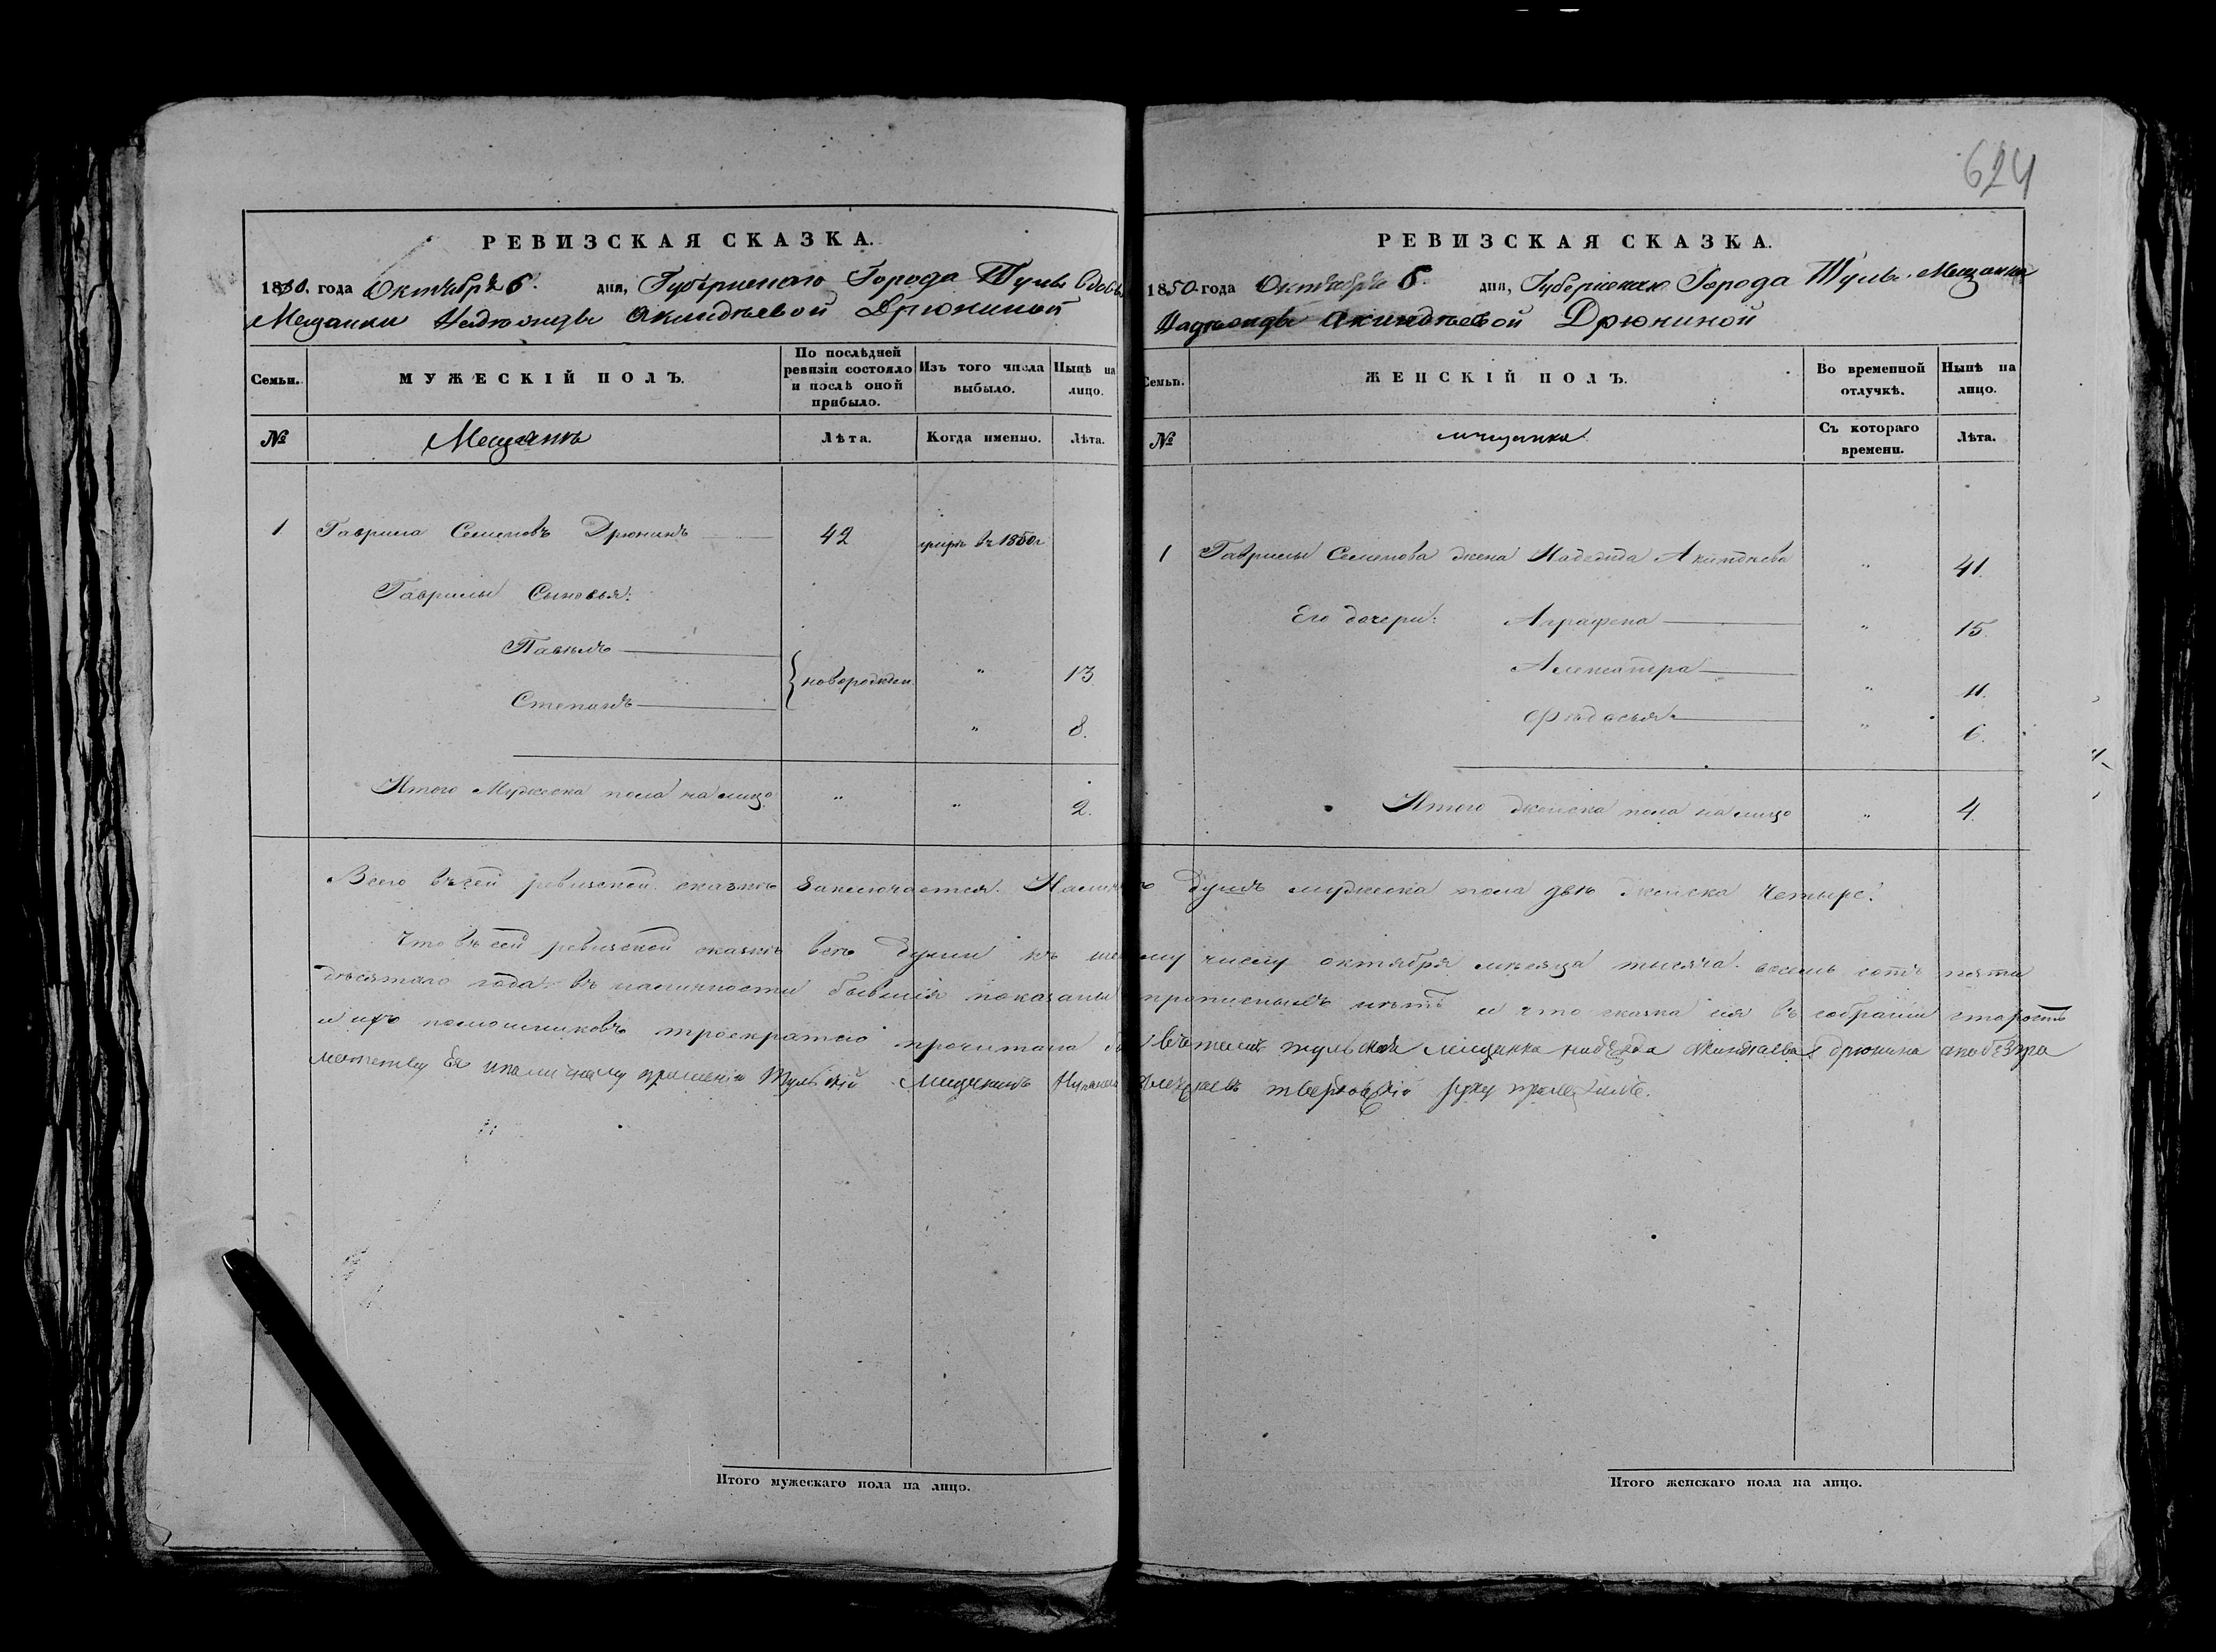 624
РЕВИЗСКАЯ СКАЗКА.
1850. года Октября 6. дня, Губернскаго Города Тулы Вдовы
Мещанки Надѣжды Акиндѣевой Дрюниной
Семьи.
МУЖЕСКІЙ ПОЛЪ.
По послѣдней ревизіи состояло и послѣ оной прибыло.
Изъ того числа выбыло.
Нынѣ на лицо.
№
Мещанинъ
Лѣта.
Когда именно.
Лѣта.
1 Гаврила Семеновъ Дрюнинъ 42 умеръ въ 1850 г
Гаврилы Сыновья:
Павелъ новорожден. " 13
Степанъ " 8.
Итого Мужеска пола на лицо " " 2.
РЕВИЗСКАЯ СКАЗКА.
1850 года Октября 6. дня, Губернскаго Города Тулы Мещанки
Надѣжды Акиндѣевой Дрюниной
Семьи.
ЖЕНСКІЙ ПОЛЪ.
Во временной отлучкѣ.
Нынѣ на лицо.
№
мещанка
Съ котораго времени.
Лѣта.
1 Гаврилы Семенова жена Надежда Акиндѣева " 41.
Его дочери: Аграфена " 15.
Александра " 11.
Федосья " 6.
Итого женска пола на лицо " 4.
Всего въ сей ревизской сказкѣ заключается. Наличныхъ душъ мужеска пола двѣ женска четыре.
Что въ сей ревизской сказкѣ всѣ души къ шестому числу октября мѣсяца тысяча восемь сотъ пяти
десятаго года въ наличности бывшія показаны прописныхъ нѣтъ и что сказка сія въ собраніи старостъ
и ихъ помошниковъ троекратно прочитана въ томъ тульская мещанка надежда Акиндѣева дрюнина
Ея прошенію Тульскій Мещанинъ руку приложилъ.
Итого мужескаго пола на лицо.
Итого женскаго пола на лицо.